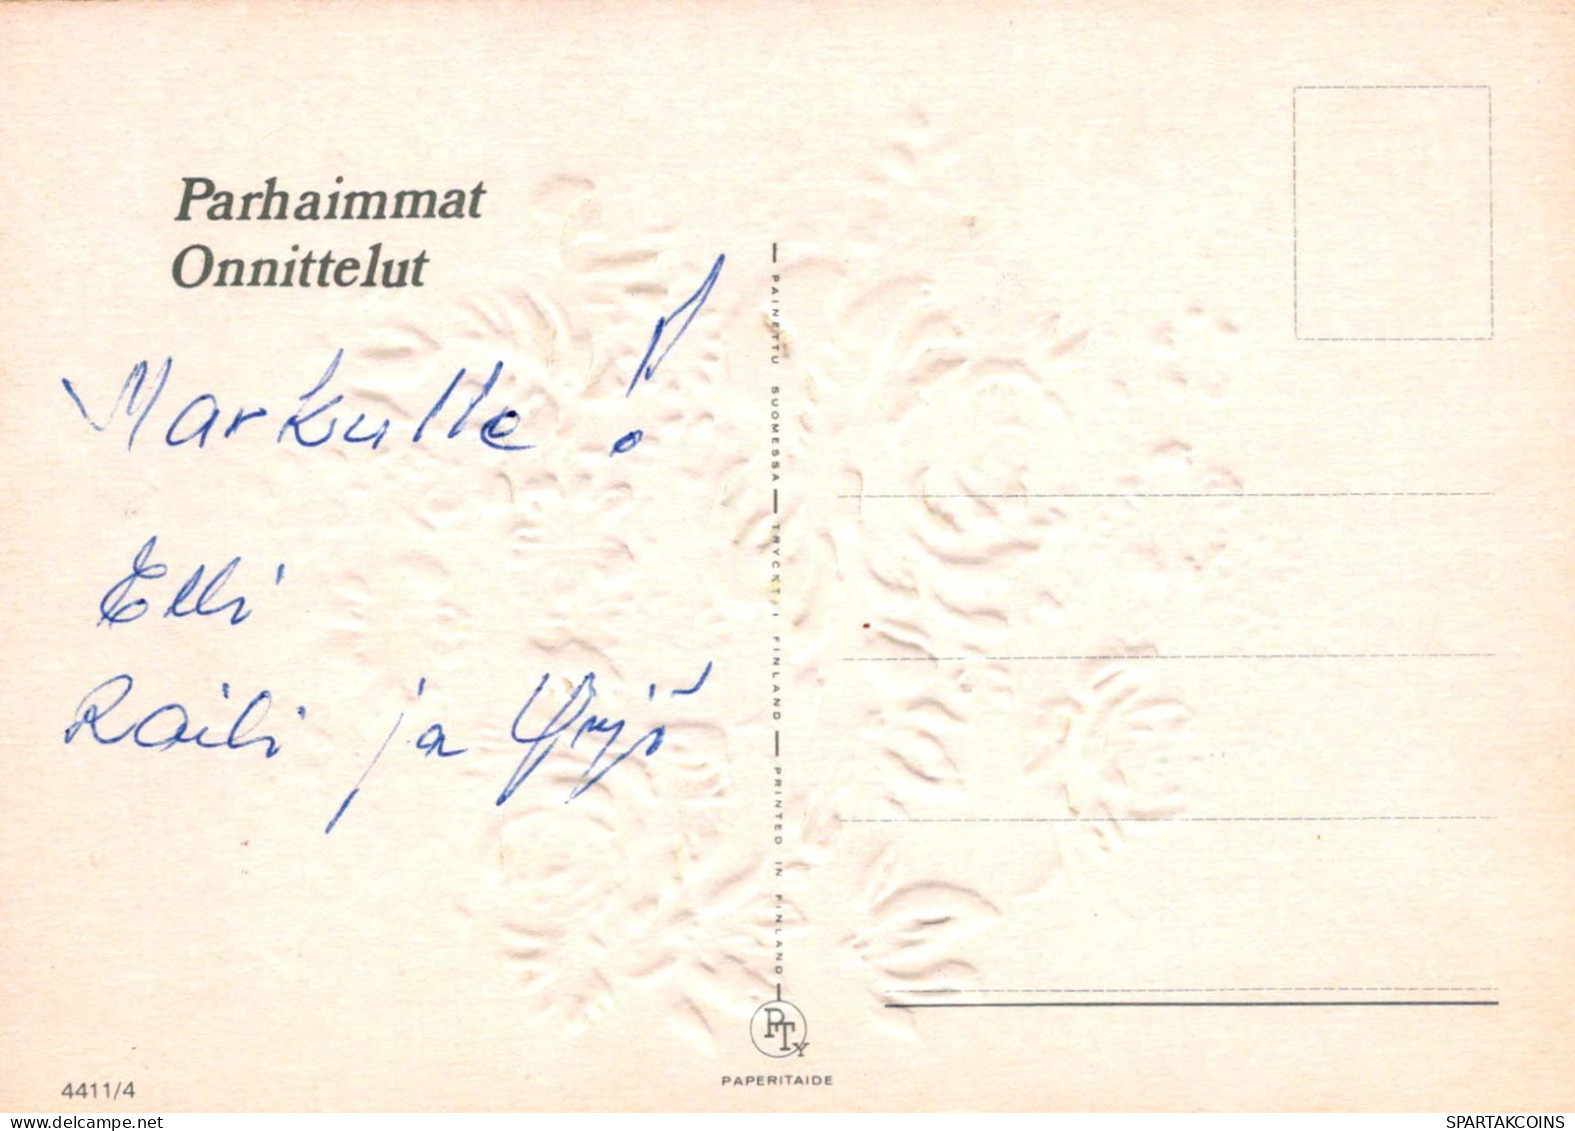 Parhaimmat
Onnittelut
Markulle!
Elli
Raili ja Yrjö
PAINETTU SUOMESSA — TRYCKT I FINLAND — PRINTED IN FINLAND
PTY
PAPERITAIDE
4411/4
SPARTAKCOINS